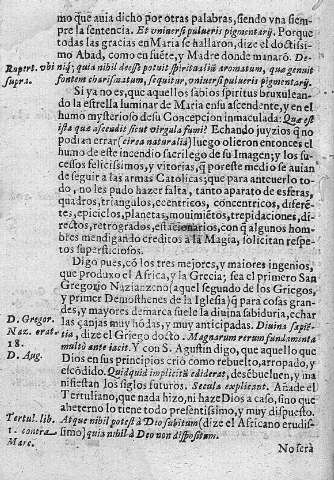 mo que auia dicho por otras palabras, siendo vna siem-
pre la sentencia. Et vniuersi pulueris pigmentarij. Porque
todas las gracias en Maria se hallaron, dize el doctissi-
mo Abad, como en fuẽte, y Madre donde manarõ. De-
Rupert. vbi supra.
nisq; quia nihil decesse potuit spiritualiũ aromatum, quæ genuit
fontem charismatum, sequitur, vniuersi pulueris pigmentarij.
Si ya no es, que aquellos sabios spiritus bruxuleando
la estrella luminar de Maria en su ascendente, y en el
humo mysterioso de su Concepcion inmaculada: Quæ est
ista quæ ascendit sicut virgula fumi? Echando juyzios q̃ no
podian errar (circa naturalia) luego olieron entonces el
humo de este incendio sacrilego de su Imagen; y los su-
cessos felicissimos, y vitorias, q̃ por este medio se auian
de seguir a las armas Catolicas; que para anteuerlo to-
do, no les pudo hazer falta, tanto aparato de esferas,
quadros, triangulos, eccentricos, concentricos, diferẽ-
tes, epiciclos, planetas, mouimiẽtos, trepidaciones, di-
rectos, retrogrados, estacionarios, con q̃ algunos hom-
bres mendigando creditos a la Magia, solicitan respe-
tos supersticiosos.
Digo pues, cõ los tres mejores, y maiores ingenios,
que produxo el Africa, y la Grecia; sea el primero San
Gregorio Nazianzeno (aquel segundo de los Griegos,
y primer Demosthenes de la Iglesia) q̃ para cosas gran-
des, y mayores de marca suele la diuina sabiduria, echar
D. Gregor. Naz. orat. 18.
las çanjas muy hõdas, y muy anticipadas. Diuina sapiẽ-
tia, dize el Griego docto. Magnarum rerum fundamenta
multò ante iacit. Y con S. Agustin digo, que aquello que
D. Aug.
Dios en sus principios criò como rebuelto, arropado, y
escõdido. Quidquid implicitè ediderat, desẽbueluen, y ma
nifiestan los siglos futuros. Secula explicant. Añade el
Tertuliano, que nada hizo, ni haze Dios a caso, sino que
abeterno lo tiene todo presentissimo, y muy dispuesto.
Tertul. lib. 1. contra Marc.
Atque nihil potest à Deo subitum (dize el Africano erudis-
simo) quia nihil à Deo non dispositum.
No serà